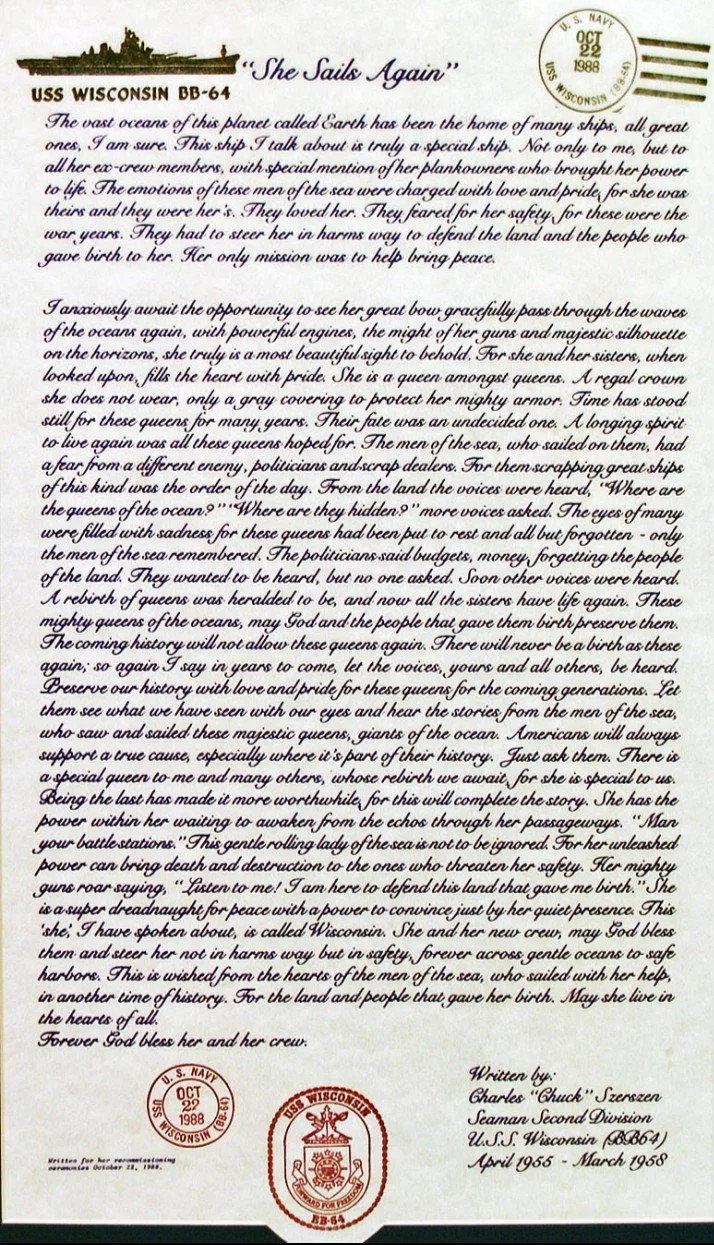 "She Sails Again"
USS WISCONSIN BB-64
U. S. NAVY
OCT
22
1988
USS WISCONSIN (BB-64)
The vast oceans of this planet called Earth has been the home of many ships, all great
ones, I am sure. This ship I talk about is truly a special ship. Not only to me, but to
all her ex-crew members, with special mention of her plankowners who brought her power
to life. The emotions of these men of the sea were charged with love and pride, for she was
theirs and they were her's. They loved her. They feared for her safety, for these were the
war years. They had to steer her in harms way to defend the land and the people who
gave birth to her. Her only mission was to help bring peace.
I anxiously await the opportunity to see her great bow gracefully pass through the waves
of the oceans again, with powerful engines, the might of her guns and majestic silhouette
on the horizons, she truly is a most beautiful sight to behold. For she and her sisters, when
looked upon, fills the heart with pride. She is a queen amongst queens. A regal crown
she does not wear, only a gray covering to protect her mighty armor. Time has stood
still for these queens for many years. Their fate was an undecided one. A longing spirit
to live again was all these queens hoped for. The men of the sea, who sailed on them, had
a fear from a different enemy, politicians and scrap dealers. For them scrapping great ships
of this kind was the order of the day. From the land the voices were heard, "Where are
the queens of the ocean?" "Where are they hidden?" more voices asked. The eyes of many
were filled with sadness for these queens had been put to rest and all but forgotten - only
the men of the sea remembered. The politicians said budgets, money, forgetting the people
of the land. They wanted to be heard, but no one asked. Soon other voices were heard.
A rebirth of queens was heralded to be, and now all the sisters have life again. These
mighty queens of the oceans, may God and the people that gave them birth preserve them.
The coming history will not allow these queens again. There will never be a birth as these
again; so again I say in years to come, let the voices, yours and all others, be heard.
Preserve our history with love and pride for these queens for the coming generations. Let
them see what we have seen with our eyes and hear the stories from the men of the sea,
who saw and sailed these majestic queens, giants of the ocean. Americans will always
support a true cause, especially where it's part of their history. Just ask them. There is
a special queen to me and many others, whose rebirth we await, for she is special to us.
Being the last has made it more worthwhile, for this will complete the story. She has the
power within her waiting to awaken from the echos through her passageways. "Man
your battle stations." This gentle rolling lady of the sea is not to be ignored. For her unleashed
power can bring death and destruction to the ones who threaten her safety. Her mighty
guns roar saying, "Listen to me! I am here to defend this land that gave me birth." She
is a super dreadnaught for peace with a power to convince just by her quiet presence. This
'she', I have spoken about, is called Wisconsin. She and her new crew, may God bless
them and steer her not in harms way but in safety, forever across gentle oceans to safe
harbors. This is wished from the hearts of the men of the sea, who sailed with her help,
in another time of history. For the land and people that gave her birth. May she live in
the hearts of all.
Forever God bless her and her crew.
U. S. NAVY
OCT
22
1988
USS WISCONSIN (BB-64)
Written for her recommissioning
ceremonies October 22, 1988.
USS WISCONSIN
FORWARD FOR FREEDOM
BB-64
Written by:
Charles "Chuck" Szerszen
Seaman Second Division
U.S.S. Wisconsin (BB64)
April 1955 - March 1958